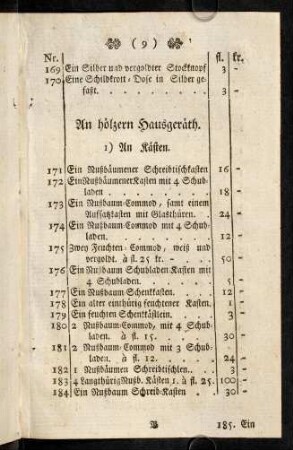 ( 9 )
Nr. fl. kr.
169 Ein Silber und vergoldter Stockknopf 3 -
170 Eine Schildkrott-Dose in Silber ge-
faßt. . . . . . . . . 3 -
An hölzern Hausgeräth.
1) An Kästen.
171 Ein Nußbäumener Schreibtischkasten 16 -
172 Ein Nußbäumener Kasten mit 4 Schub-
laden . . . . . . . 18 -
173 Ein Nußbaum-Commod, samt einem
Aufsatzkasten mit Glasthüren. . 24 -
174 Ein Nußbaum Commod mit 4 Schub-
laden. . . . . . . . 12 -
175 Zwey Feuchten-Commod, weiß und
vergoldt. à fl. 25 kr. - . . 50 -
176 Ein Nußbaum Schubladen Kasten mit
4 Schubladen. . . . . . 5 -
177 Ein Nußbaum Schenkkasten. . . 12 -
178 Ein alter einthürig feuchtener Kasten. 1 -
179 Ein feuchten Schenkkästlein. . . 3 -
180 2 Nußbaum-Commod, mit 4 Schub-
laden. à fl. 15. . . . . 30 -
181 2 Nußbaum-Commod mit 3 Schub-
laden. à fl. 12. . . . . 24 -
182 1 Nußbäumen Schreibtischlen. . . 3 -
183 4 Langthürig Nußb. Kästen 1. à fl. 25. 100 -
184 Ein Nußbaum Schreib-Kasten . 30 -
185. Ein